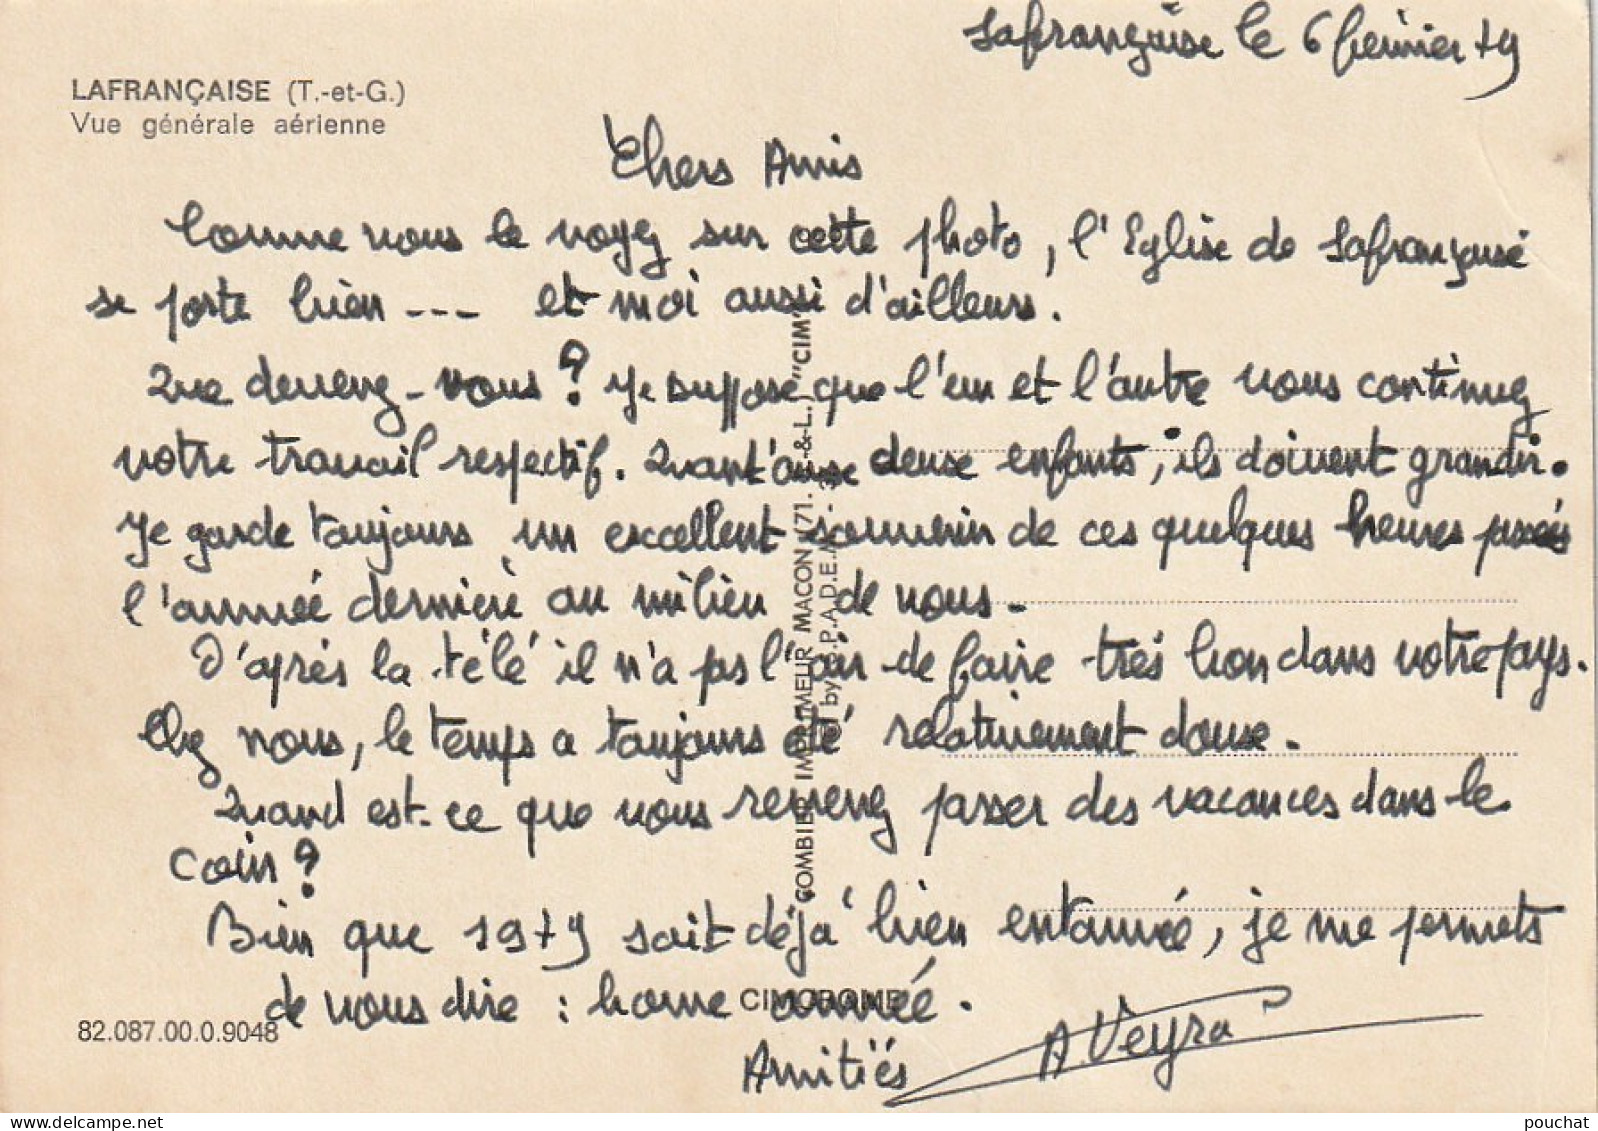 Lafrançaise le 6 février 79
LAFRANÇAISE (T.-et-G.)
Vue générale aérienne
Chers Amis
Comme vous le voyez sur cette photo, l'Eglise de Lafrançaise
se porte bien --- et moi aussi d'ailleurs.
Que devenez-vous? Je suppose que l'un et l'autre vous continuez
votre travail respectif. Quant'aux deux enfants, ils doivent grandir.
Je garde toujours un excellent souvenir de ces quelques heures passées
l'année dernière au milieu de vous.
D'après la télé il n'a pas l'air de faire très bon dans votre pays.
Chez nous, le temps a toujours été relativement doux.
Quand est-ce que vous revenez passer des vacances dans le
coin?
Bien que 1979 soit déjà bien entamée, je me permets
de vous dire : bonne année.
Amitiés A. Veyra
COMBIER IMPRIMEUR MACON (71. S.-&-L.) "CIM"
by S.P.A.D.E.M.
CIMCROME
82.087.00.0.9048
pouchat